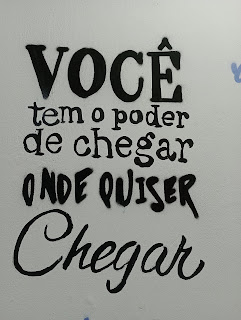 VOCÊ
tem o poder
de chegar
ONDE QUISER
Chegar